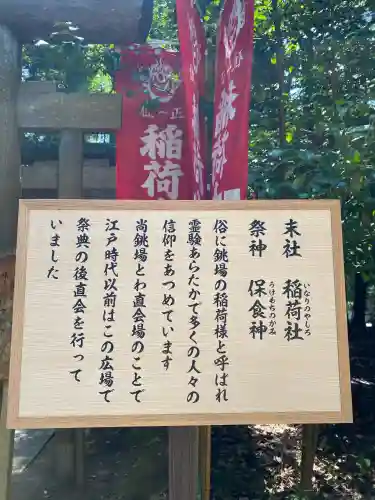 正一位
稲荷
稲荷
末社 稲荷社
いなりのやしろ
祭神 保食神
うけもちのかみ
俗に銚場の稲荷様と呼ばれ
霊験あらたかで多くの人々の
信仰をあつめています
尚銚場とわ直会場のことで
江戸時代以前はこの広場で
祭典の後直会を行って
いました